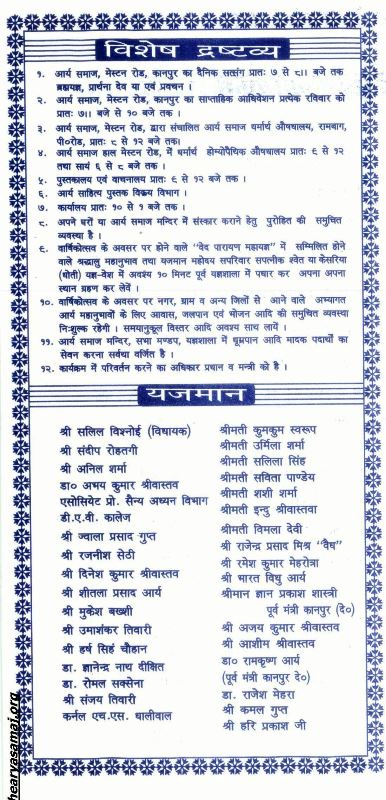 विशेष द्रष्टव्य
१. आर्य समाज, मेस्टन रोड, कानपुर का दैनिक सत्संग प्रातः ७ से ८।। बजे तक
ब्रह्मयज्ञ, प्रार्थना देव या एवं प्रवचन ।
२. आर्य समाज, मेस्टन रोड, कानपुर का साप्ताहिक आधिवेशन प्रत्येक रविवार को
प्रातः ७।। बजे से १० बजे तक ।
३. आर्य समाज, मेस्टन रोड, द्वारा संचालित आर्य समाज धर्मार्थ औषधालय, रामबाग,
पी०रोड, प्रातः ८ से १२ बजे तक।
४. आर्य समाज हाल मेस्टन रोड, में धर्मार्थ होम्योपैथिक औषधालय प्रातः ९ से १२
तथा सायं ६ से ८ बजे तक ।
५. पुस्तकालय एवं वाचनालय प्रातः ९ से १२ बजे तक ।
६. आर्य साहित्य पुस्तक विक्रय विभाग ।
७. कार्यालय प्रातः १० से १ बजे तक ।
८. अपने घरों या आर्य समाज मन्दिर में संस्कार कराने हेतु पुरोहित की समुचित
व्यवस्था है ।
९. वार्षिकोत्सव के अवसर पर होने वाले "वेद पारायण महायज्ञ" में सम्मिलित होने
वाले श्रद्धालु महानुभाव तथा यजमान महोदय सपरिवार सपत्नीक श्वेत या केसरिया
(धोती) यज्ञ-वेश में अवश्य १० मिनट पूर्व यज्ञशाला में पधार कर अपना अपना
स्थान ग्रहण कर लेवें ।
१०. वार्षिकोत्सव के अवसर पर नगर, ग्राम व अन्य जिलों से आने वाले अभ्यागत
आर्य महानुभावों के लिए आवास, जलपान एवं भोजन आदि की समुचित व्यवस्था
निःशुल्क रहेगी । समयानुकूल विस्तर आदि अवश्य साथ लायें ।
११. आर्य समाज मन्दिर, सभा मण्डप, यज्ञशाला में धूम्रपान आदि मादक पदार्थों का
सेवन करना सर्वथा वर्जित है ।
१२. कार्यक्रम में परिवर्तन करने का अधिकार प्रधान व मन्त्री को है ।
यजमान
श्री सलिल विश्नोई (विधायक)
श्री संदीप रोहतगी
श्री अनिल शर्मा
डा० अभय कुमार श्रीवास्तव
एसोसियेट प्रो. सैन्य अध्यन विभाग
डी.ए.वी. कालेज
श्री ज्वाला प्रसाद गुप्त
श्री रजनीश सेठी
श्री दिनेश कुमार श्रीवास्तव
श्री शीतला प्रसाद आर्य
श्री मुकेश बख्शी
श्री उमाशंकर तिवारी
श्री हर्ष सिंह चौहान
डा. ज्ञानेन्द्र नाथ दीक्षित
डा. रोमल सक्सेना
श्री संजय तिवारी
कर्नल एच.एस. धालीवाल
श्रीमती कुमकुम स्वरूप
श्रीमती उर्मिला शर्मा
श्रीमती सलिला सिंह
श्रीमती सविता पाण्डेय
श्रीमती शशी शर्मा
श्रीमती इन्दु श्रीवास्तवा
श्रीमती विमला देवी
श्री राजेन्द्र प्रसाद मिश्र "वैद्य"
श्री रमेश कुमार मेहरोत्रा
श्री भारत विधु आर्य
श्रीमान ज्ञान प्रकाश शास्त्री
पूर्व मंत्री कानपुर (दे०)
श्री अजय कुमार श्रीवास्तव
श्री आशीम श्रीवास्तव
डा० रामकृष्ण आर्य
(पूर्व मंत्री कानपुर दे०)
डा. राजेश मेहरा
श्री कमल गुप्त
श्री हरि प्रकाश जी
hearyasamaj.org